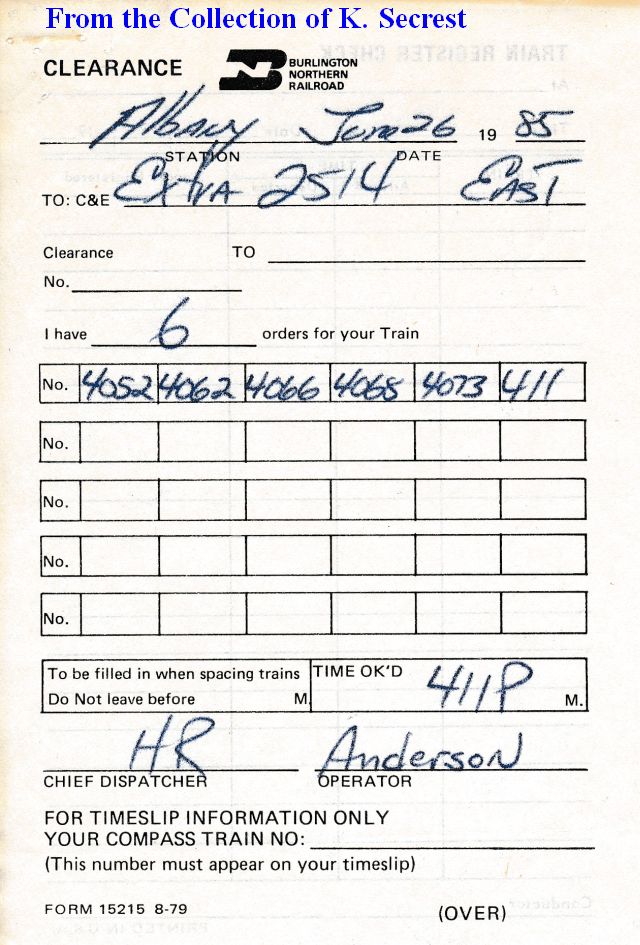 From the Collection of K. Secrest
CLEARANCE BURLINGTON NORTHERN RAILROAD
Albany June 26 19 85
STATION DATE
TO: C&E Extra 2514 EAST
Clearance TO
No.
I have 6 orders for your Train
No. 4052 4062 4066 4068 4073 411
No.
No.
No.
No.
To be filled in when spacing trains TIME OK'D 411P M.
Do Not leave before M.
HR Anderson
CHIEF DISPATCHER OPERATOR
FOR TIMESLIP INFORMATION ONLY
YOUR COMPASS TRAIN NO:
(This number must appear on your timeslip)
FORM 15215 8-79 (OVER)